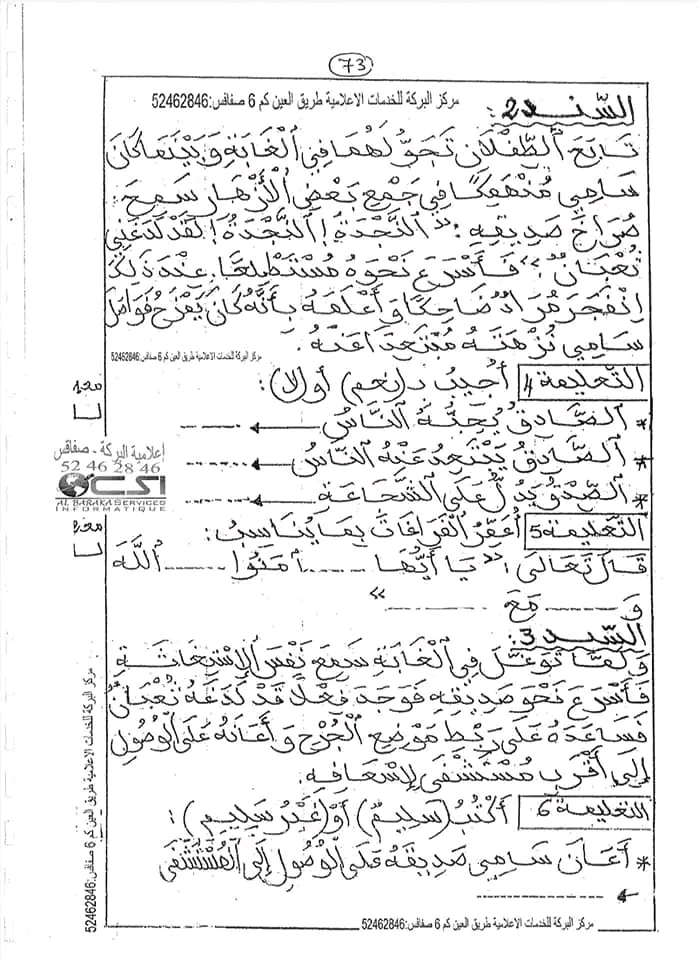 73
مركز البركة للخدمات الاعلامية طريق العين كم 6 صفاقس:52462846
السّند 2:
تَابَعَ الطِّفْلَانِ تَجَوُّلَهُمَا فِي الْغَابَةِ وَبَيْنَمَا كَانَ
سَامِي مُنْهَمِكًا فِي جَمْعِ بَعْضِ الْأَزْهَارِ سَمِعَ
صُرَاخَ صَدِيقِهِ: "النَّجْدَةُ! النَّجْدَةُ! لَقَدْ لَدَغَنِي
ثُعْبَانٌ"، فَأَسْرَعَ نَحْوَهُ مُسْتَطْلِعًا. عِنْدَ ذَلِكَ
اِنْفَجَرَ مُرَادٌ ضَاحِكًا وَأَعْلَمَهُ بِأَنَّهُ كَانَ يَمْزَحُ فَوَاصَلَ
سَامِي نُزْهَتَهُ مُبْتَعِدًا عَنْهُ.
مركز البركة للخدمات الاعلامية طريق العين كم 6 صفاقس:52462846
التعليمة 4 أُجِيبُ بـ(نعم) أو(لا):
* الصَّادِقُ يُحِبُّهُ النَّاسُ
* الصَّادِقُ يَبْتَعِدُ عَنْهُ النَّاسُ
* الصِّدْقُ يَدُلُّ عَلَى الشَّجَاعَةِ
إعلامية البركة - صفاقس
52 46 28 46
CSI
AL BARAKA SERVICES
INFORMATIQUE
التعليمة 5 أُعَمِّرُ الْفَرَاغَاتِ بِمَا يُنَاسِبُ:
قَالَ تَعَالَى: "يَا أَيُّهَا ........ آمَنُوا ........ اللَّهَ
وَ ........ مَعَ ............ "
السّند 3:
وَلَمَّا تَوَغَّلَ فِي الْغَابَةِ سَمِعَ نَفْسَ الْإِسْتِغَاثَةِ
فَأَسْرَعَ نَحْوَ صَدِيقِهِ فَوَجَدَهُ فِعْلًا قَدْ لَدَغَهُ ثُعْبَانٌ
فَسَاعَدَهُ عَلَى رَبْطِ مَوْضِعِ الْجُرْحِ وَأَعَانَهُ عَلَى الْوُصُولِ
إِلَى أَقْرَبِ مُسْتَشْفَى لِإِسْعَافِهِ.
التعليمة 6 أَكْتُبُ (سَلِيمٌ) أَوْ (غَيْرُ سَلِيمٍ):
* أَعَانَ سَامِي صَدِيقَهُ عَلَى الْوُصُولِ إِلَى الْمُسْتَشْفَى
مركز البركة للخدمات الاعلامية طريق العين كم 6 صفاقس:52462846
مركز البركة للخدمات الاعلامية طريق العين كم 6 صفاقس:52462846